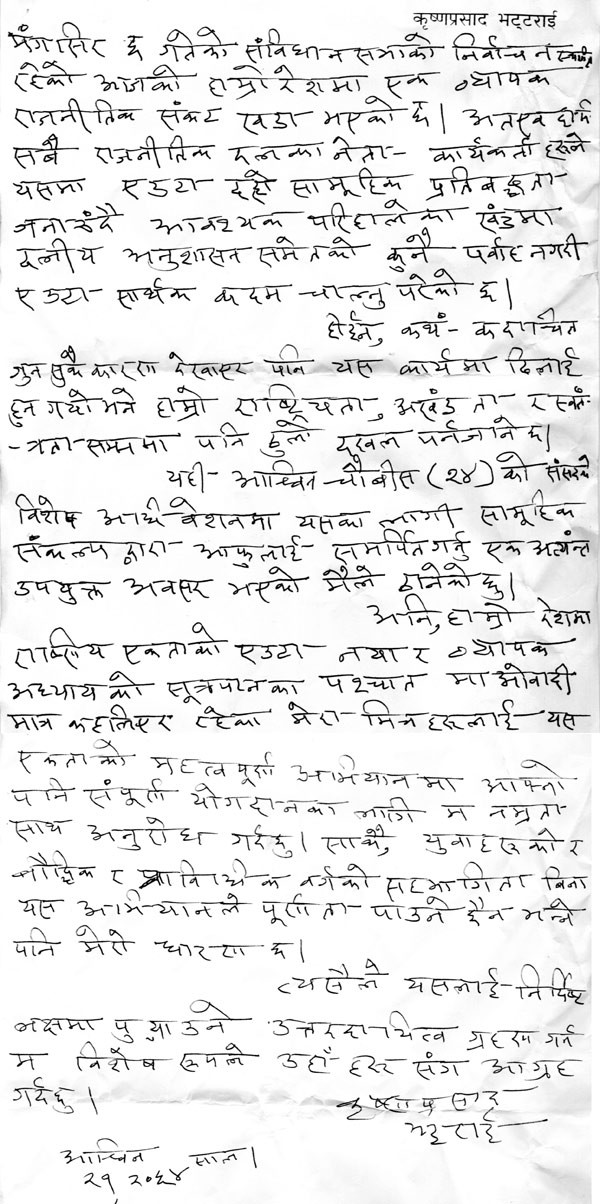 कृष्णप्रसाद भट्टराई
मंगसिर ६ गतेको संविधान सभाको निर्वाचन स्थगित
रहेको आजको हाम्रो देशमा एक व्यापक
राजनीतिक संकट खडा भएको छ। अतएव हामी
सबै राजनीतिक दलका नेता- कार्यकर्ताहरूले
यसमा एउटा दह्रो सामूहिक प्रतिबद्धता-
जनाउंदै आवश्यक परिहालेका खंडमा
दलीय अनुशासन समेतको कुनै पर्वाह नगरी
एउटा सार्थक कदम चाल्नु परेको छ।
होईन, कथं- कदाचित
गुनसुकै कारण देखाएर पनि यस कार्यमा ढिलाई
हुन गयो भने हाम्रो राष्ट्रियता, अखंडता र स्वतं-
-त्रता सम्ममा पनि ठुलो दखल पर्नजाने छ।
यही- आश्विन चौबीस (२४) को संसदको
विशेष अधिवेशनमा यसका लागी सामूहिक
संकल्पद्वारा आफुलाई समर्पित गर्नु एक अत्यंत
उपयुक्त अवसर भएको मैले ठानेको छु।
अनि, हाम्रो देशमा
राष्ट्रिय एकताको एउटा नया र व्यापक
अध्यायको सूत्रपातका पश्चात माओवादी
मात्र कहलिएर रहेका मेरा मित्रहरूलाई यस
एकताको महत्वपूर्ण अभियानमा आफ्नो
पनि संपूर्ण योगदानका लागि म नम्रता
साथ अनुरोध गर्दछु। साथै, युवाहरूको र
बौद्धिक र प्राविधिक वर्गको सहभागिता बिना
यस अभियानले पूर्णता पाउने छैन भन्ने
पनि मेरो धारणा छ।
त्यसैले यसलाई निर्दिष्ट
लक्षमा पुर्‍याउने उत्तरदायित्व ग्रहण गर्न
म विशेष रूपले उहाँहरू संग आग्रह
गर्दछु।
कृष्णप्रसाद
भट्टराई
आश्विन साल।
२१ २०६४